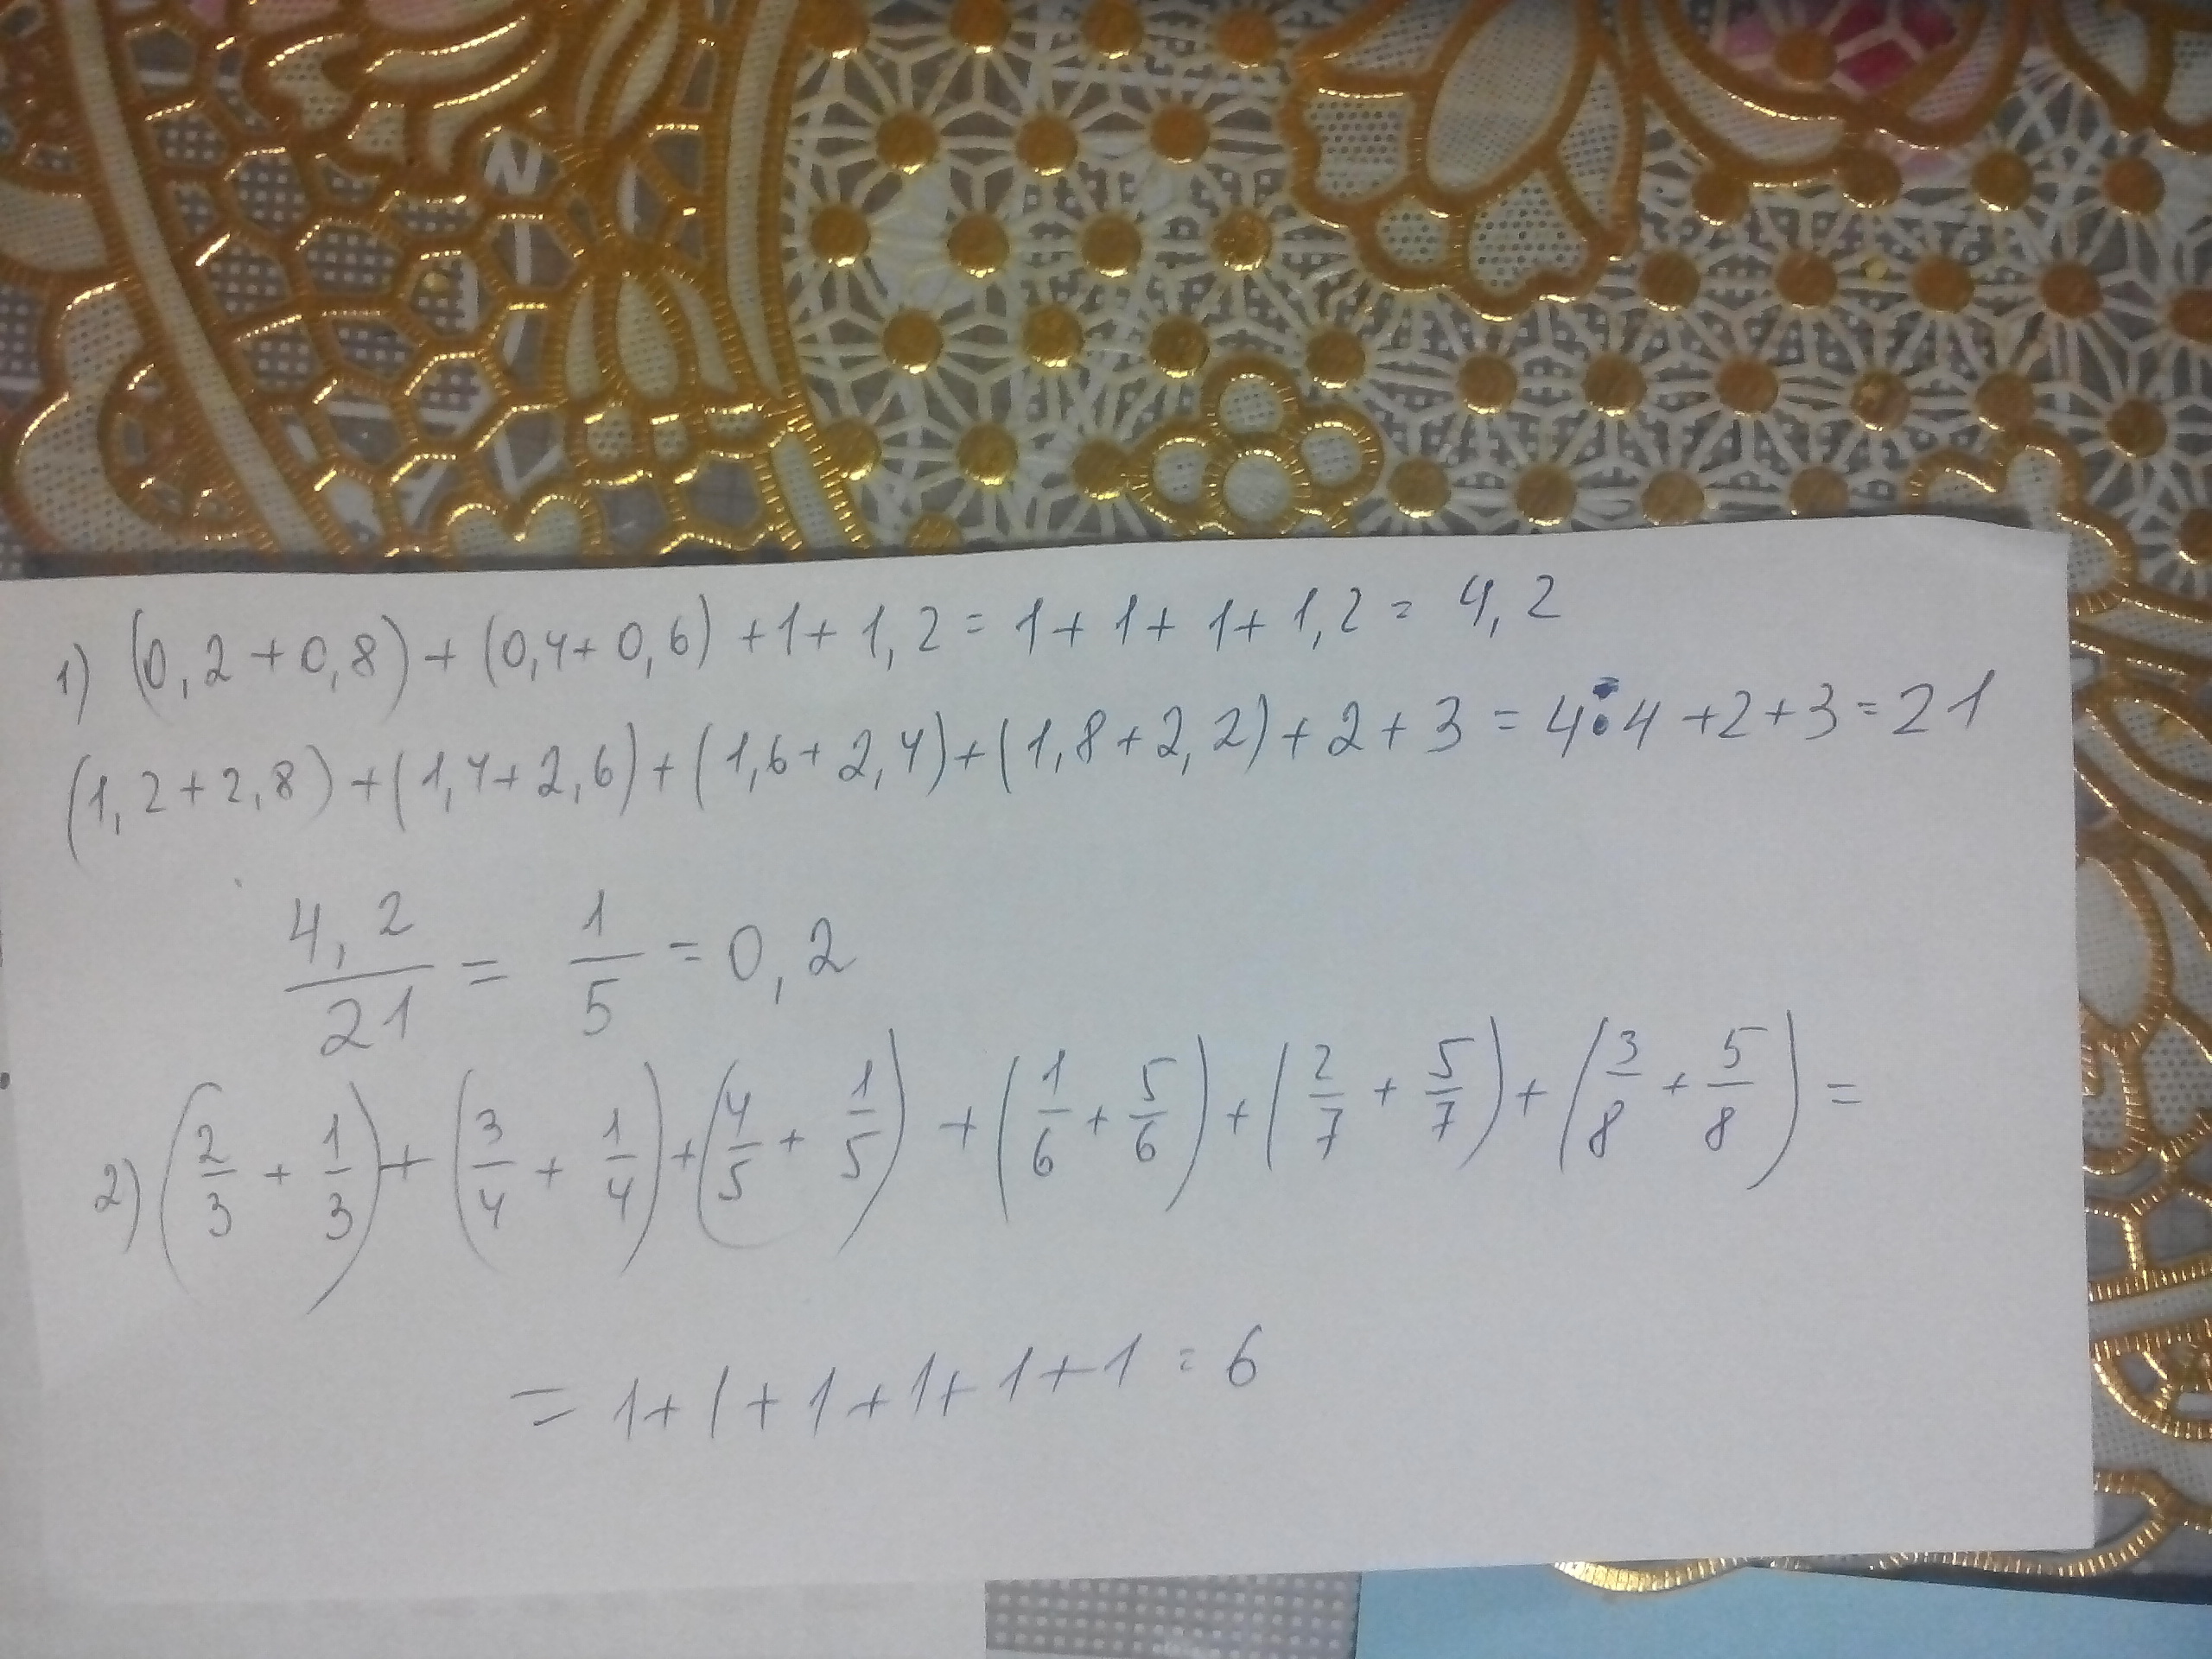 1) (0,2+0,8)+(0,4+0,6)+1+1,2=1+1+1+1,2=4,2
(1,2+2,8)+(1,4+2,6)+(1,6+2,4)+(1,8+2,2)+2+3=4·4+2+3=21
4,2/21 = 1/5 = 0,2
2) (2/3 + 1/3)+(3/4 + 1/4)+(4/5 + 1/5)+(1/6 + 5/6)+(2/7 + 5/7)+(3/8 + 5/8)=
=1+1+1+1+1+1=6